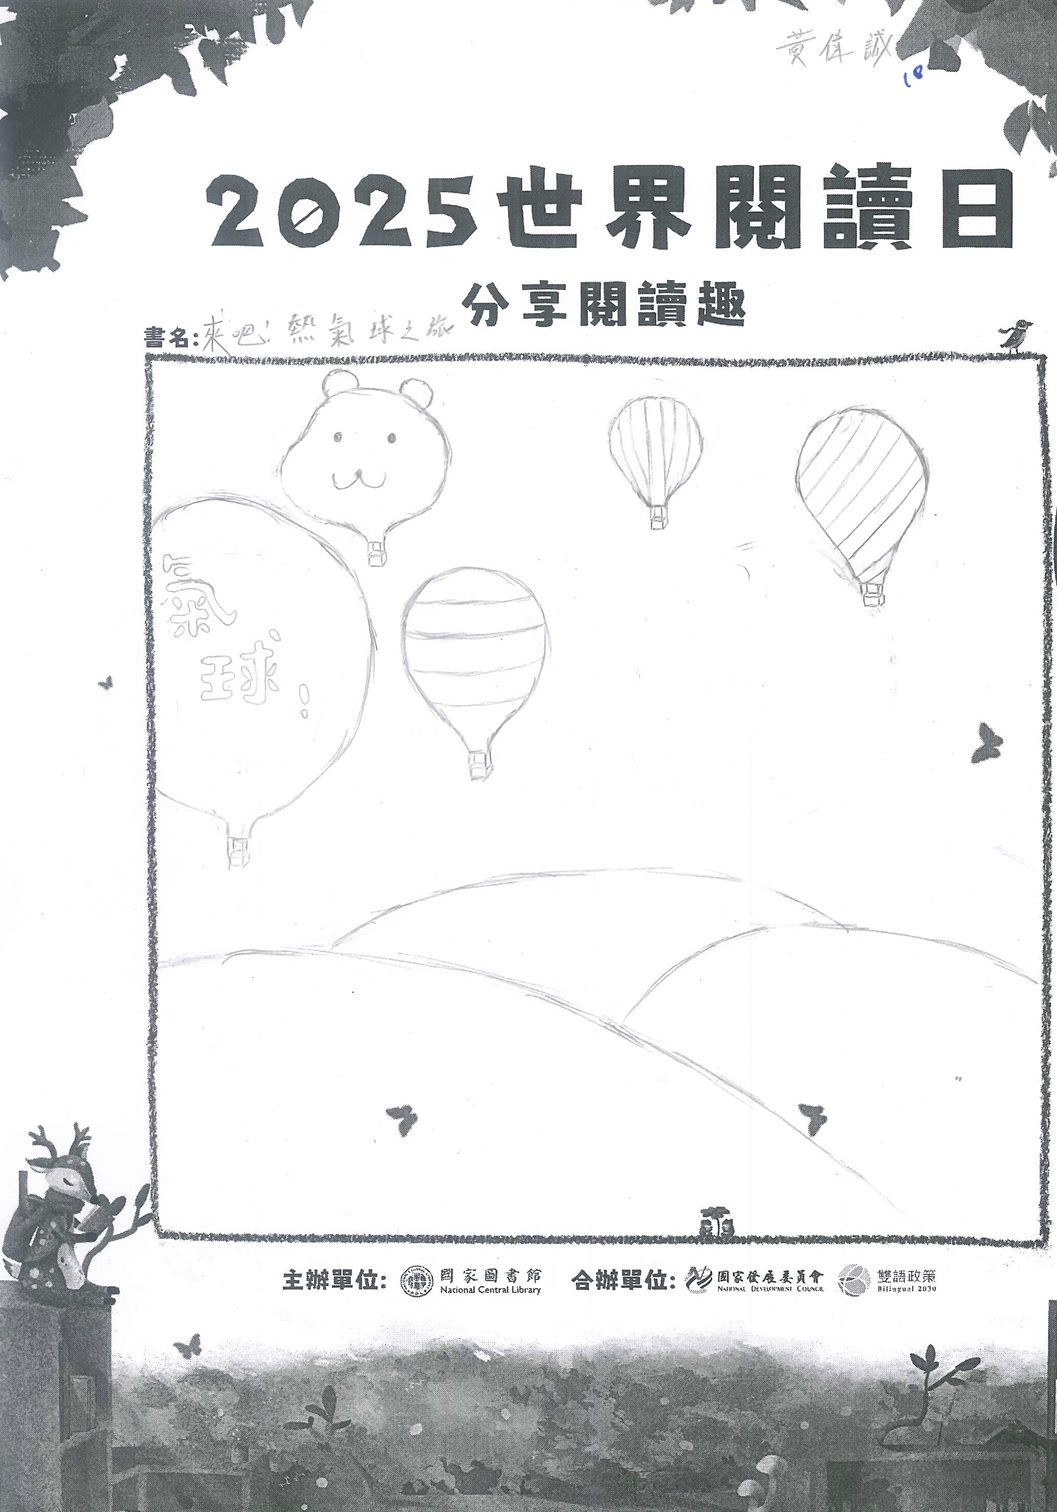 黃偉誠
18
2025世界閱讀日
分享閱讀趣
書名:來吧!熱氣球之旅
氣
球!
主辦單位: 國家圖書館 National Central Library 合辦單位: 國家發展委員會 NATIONAL DEVELOPMENT COUNCIL 雙語政策 Bilingual 2030